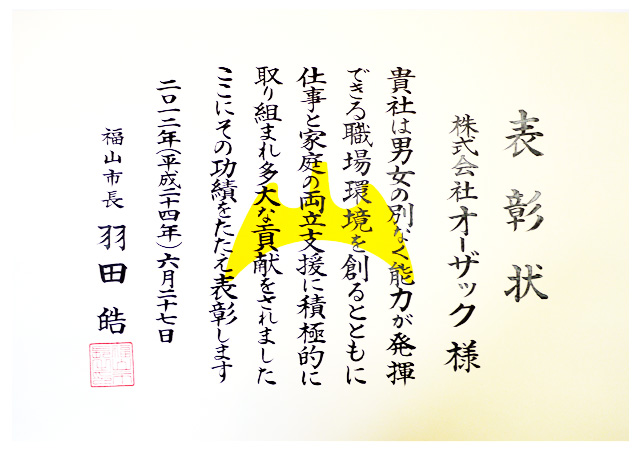 表彰状
株式会社オーザック様
貴社は男女の別なく能力が発揮
できる職場環境を創るとともに
仕事と家庭の両立支援に積極的に
取り組まれ多大な貢献をされました
ここにその功績をたたえ表彰します
二〇一二年(平成二十四年)六月二十七日
福山市長 羽田 皓